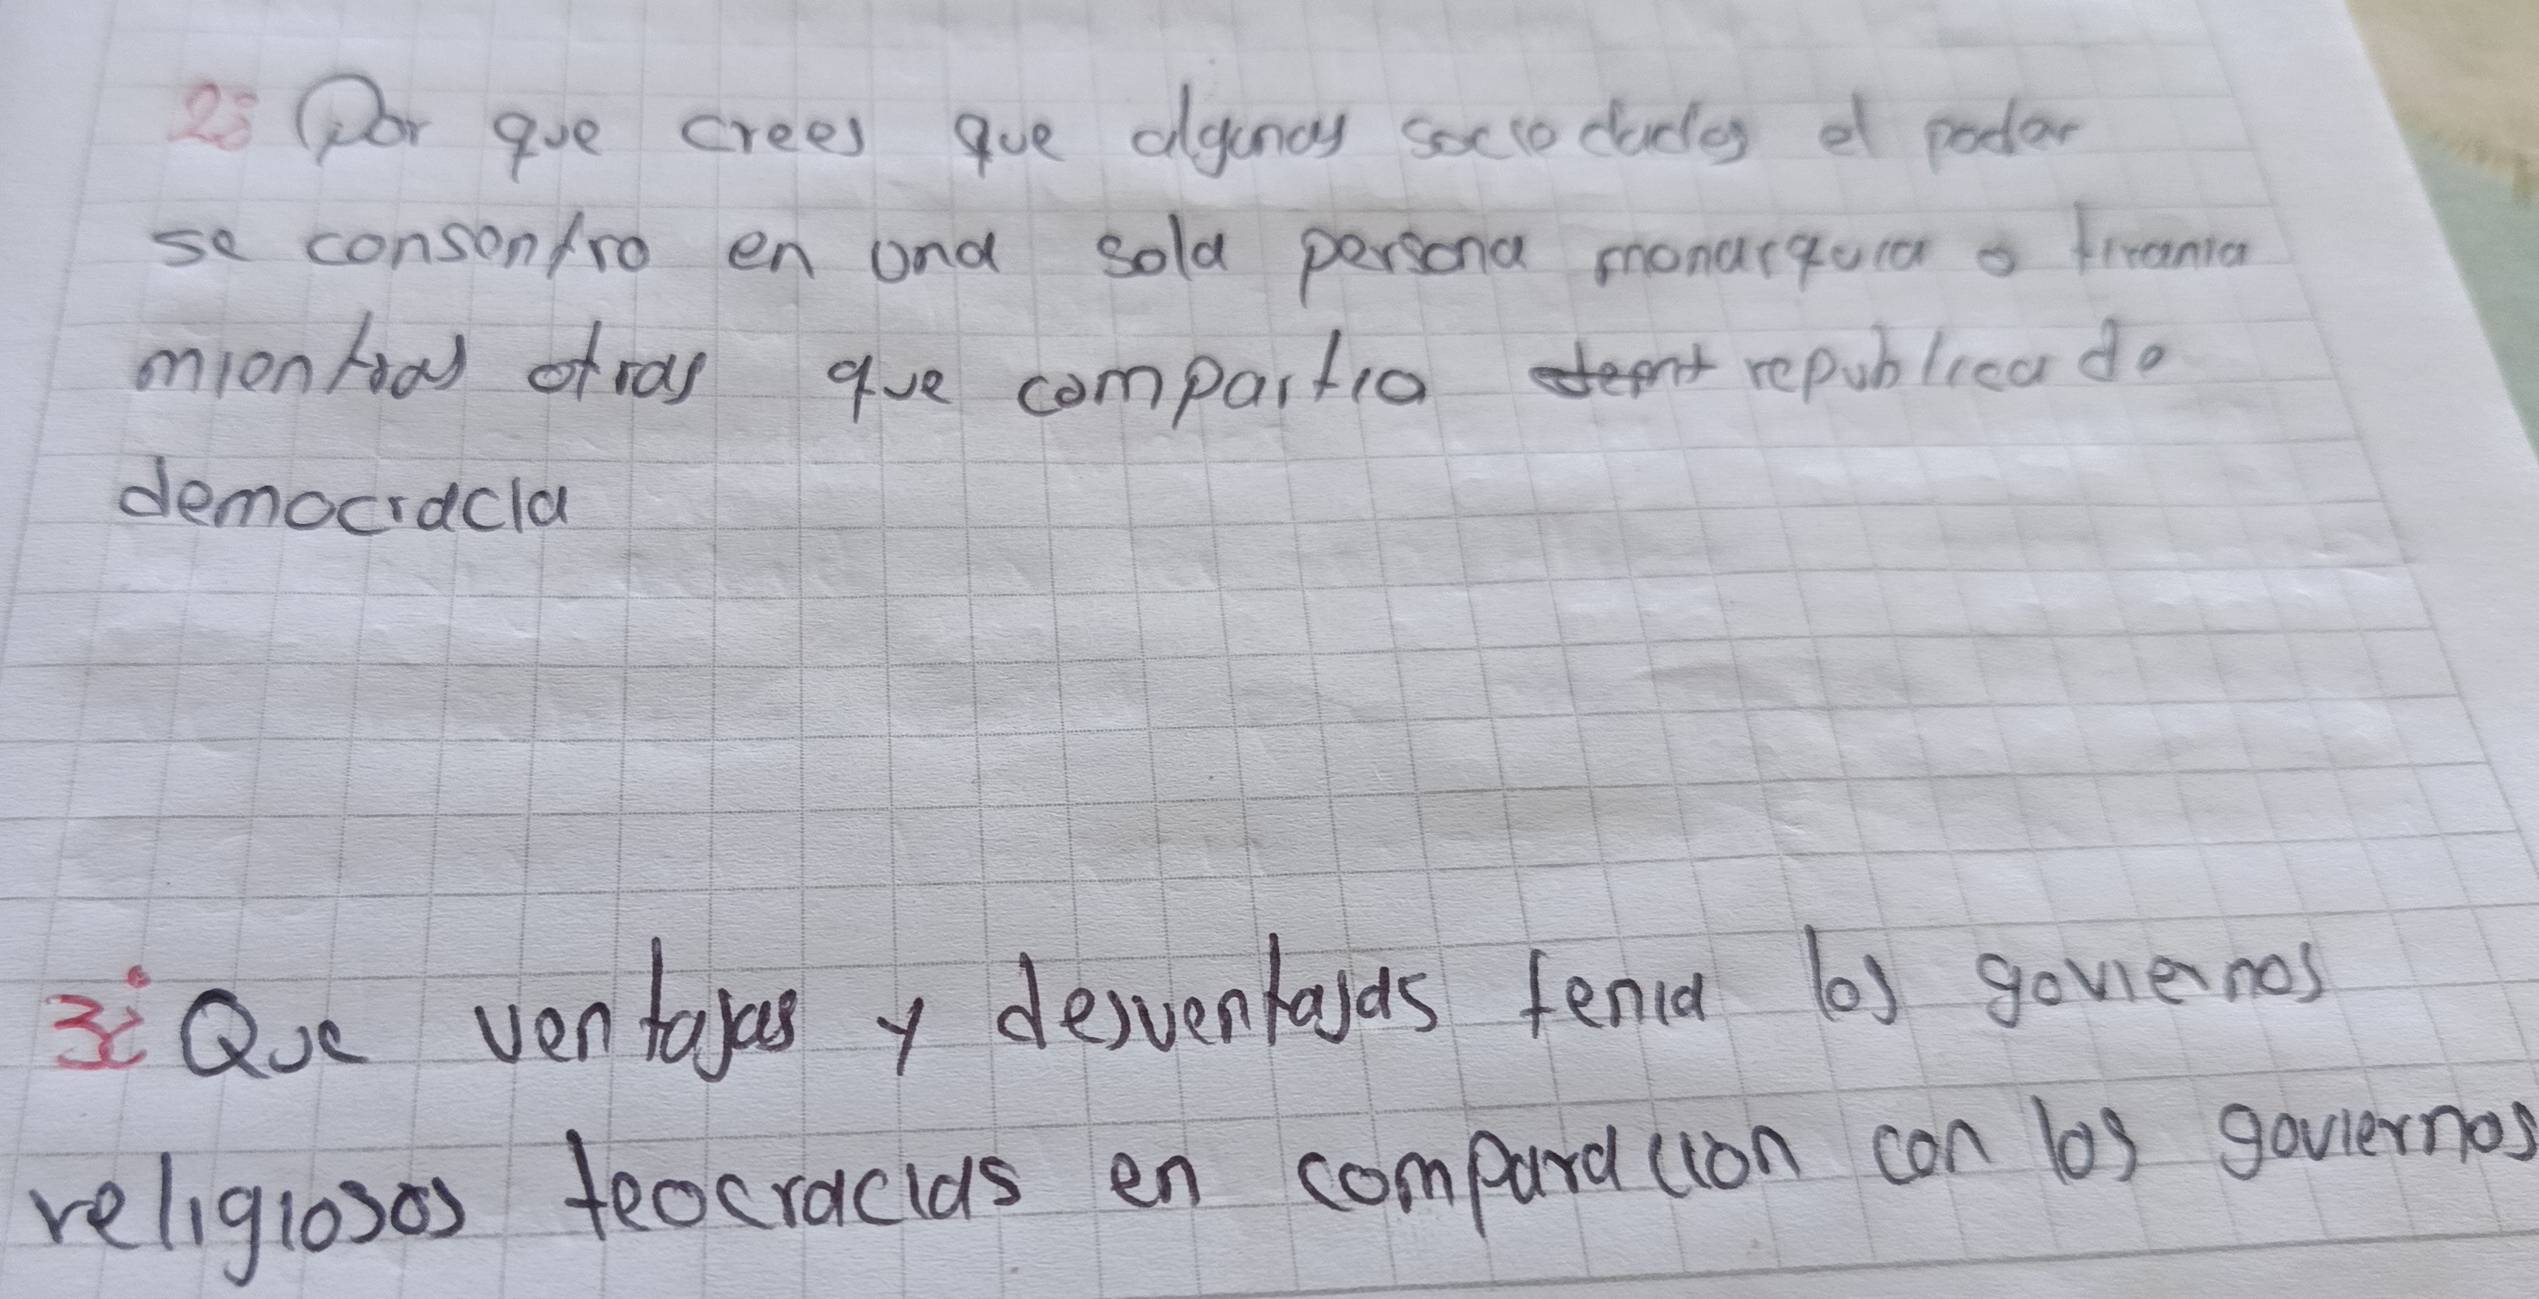 2: Por que crees que algunas sociodades el poder
se consontro en una sola persona monarquia o tirania
miontras otras que compartio republica do
democracia
3: Que ventajas y desventajas tenia los goviernos
religiosos teocracias en comparacion con los goviernos